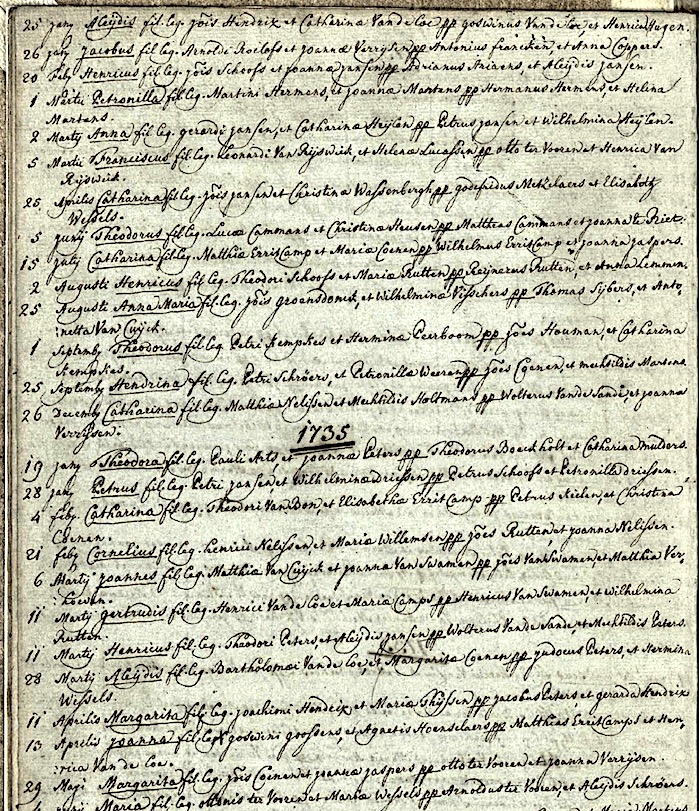 25 janÿ Aleÿdis fil. leg. joïs Hendrix et Catharinæ Van de Loe pp goswinus Van de Loe, et Henrica Hugen.
26 janÿ jacobus fil. leg. Arnoldi Roelofs et joannæ Verrÿsen pp Antonius francken, et Anna Coppers.
20 Febÿ Henricus fil. leg. joïs Schoofs et joannæ jansen pp Adrianus Aniaens, et Aleÿdis jansen.
1 Martii Petronilla fil. leg. Martini Hermens, et joannæ Martens pp Hermanus Hermens, et Helina
Martens.
2 Martÿ Anna fil. leg. gerardi jansen, et Catharinæ Heÿlen pp Petrus jansen et Wilhelmina Heÿlen.
5 Martii Franciscus fil. leg. Leonardi Van Rÿswick, et Helenæ Lucassen, pp otto ter Vooren et Henrica Van
Rÿswick.
25 Aprilis Catharina fil. leg. joïs jansen et Christinæ Wassenbergh pp godefridus Metselaers et Elisabeth
Wessels.
5 junÿ Theodorus fil. leg. Lucæ Cammans et Christinæ Heusen pp Matthias Cammans et joanna te Riet.
15 julÿ Catharina fil. leg. Matthiæ ErritCamp et Mariæ Coenen pp Wilhelmus ErritCamp et joanna jaspers.
2 Augusti Henricus fil. leg. Theodori Schoofs et Mariæ Rutten pp Reÿnerus Rutten, et Anna Lemmen.
25 Augusti Anna Maria fil. leg. joïs groensdonck, et Wilhelminæ Visschers pp Thomas Sÿbers, et Anto-
netta Van Cuÿck.
1 Septemb. Theodorus fil. leg. Petri Kempkes et Herminæ Peerboom pp joës Houman, et Catharina
Kempkes.
25 Septemb. Hendrina fil. leg. Petri Schröers, et Petronillæ Weeren pp joës Coenen, et mechtildis Martens
26 Decemb. Catharina fil. leg. Matthiæ Nelissen et Mechtildis Holtmans pp Wolterus Van de Sande, et joanna
Verrÿsen.
1735
19 janÿ Theodora fil. leg. Pauli Arts, et joannæ Peters pp Theodorus Boeckholt et Catharina mulders.
28 janÿ Petrus fil. leg. Petri jansen, et Wilhelminæ driessen, pp Petrus Schoofs et Petronilla driessen.
4 feb. Catharina fil. leg. Theodori Van Don, et Elisabethæ ErritCamp pp Petrus Kielen, et Christina
Coenen.
21 feb. Cornelius fil. leg. henrici Nelissen, et Mariæ Willemsen pp joës Rutten et joanna Nelissen.
6 Martÿ joannes fil. leg. Matthiæ Van Cuÿck et joannæ Van Swamen pp joës Van Swamen, et Matthia Ver-
hoeven.
11 Martÿ gertrudis fil. leg. Henrici Van de Loe et Mariæ Camps pp Henricus Van Swamen, et Wilhelmina
Rutten.
11 Martÿ Henricus fil. leg. Theodori Peters et Aleÿdis jansen pp Wolterus Van de Sande, et Mechtildis Peters.
28 Martÿ Aleÿdis fil. leg. Bartholomæi Van de Loe, et Margaritæ Coenen pp judocus Peters, et Hermina
Wessels.
11 Aprilis Margarita fil. leg. joachimi Hendrix, et Mariæ Thÿssen pp jacobus Peters, et gerarda Hendrix
13 Aprilis joanna fil. leg. goswini goossens, et Agnetis Hoenselaers pp Matthias ErritCamps et Hen-
rica Van de Loe.
29 Maÿ Margarita fil. leg. joïs Coenen et joannæ jaspers pp otto ter Vooren et joanna Verrÿsen.
Maria fil. leg. ottonis ter Vooren et Mariæ Wessels pp Arnoldus ter Vooren, et Aleÿdis Schröers.